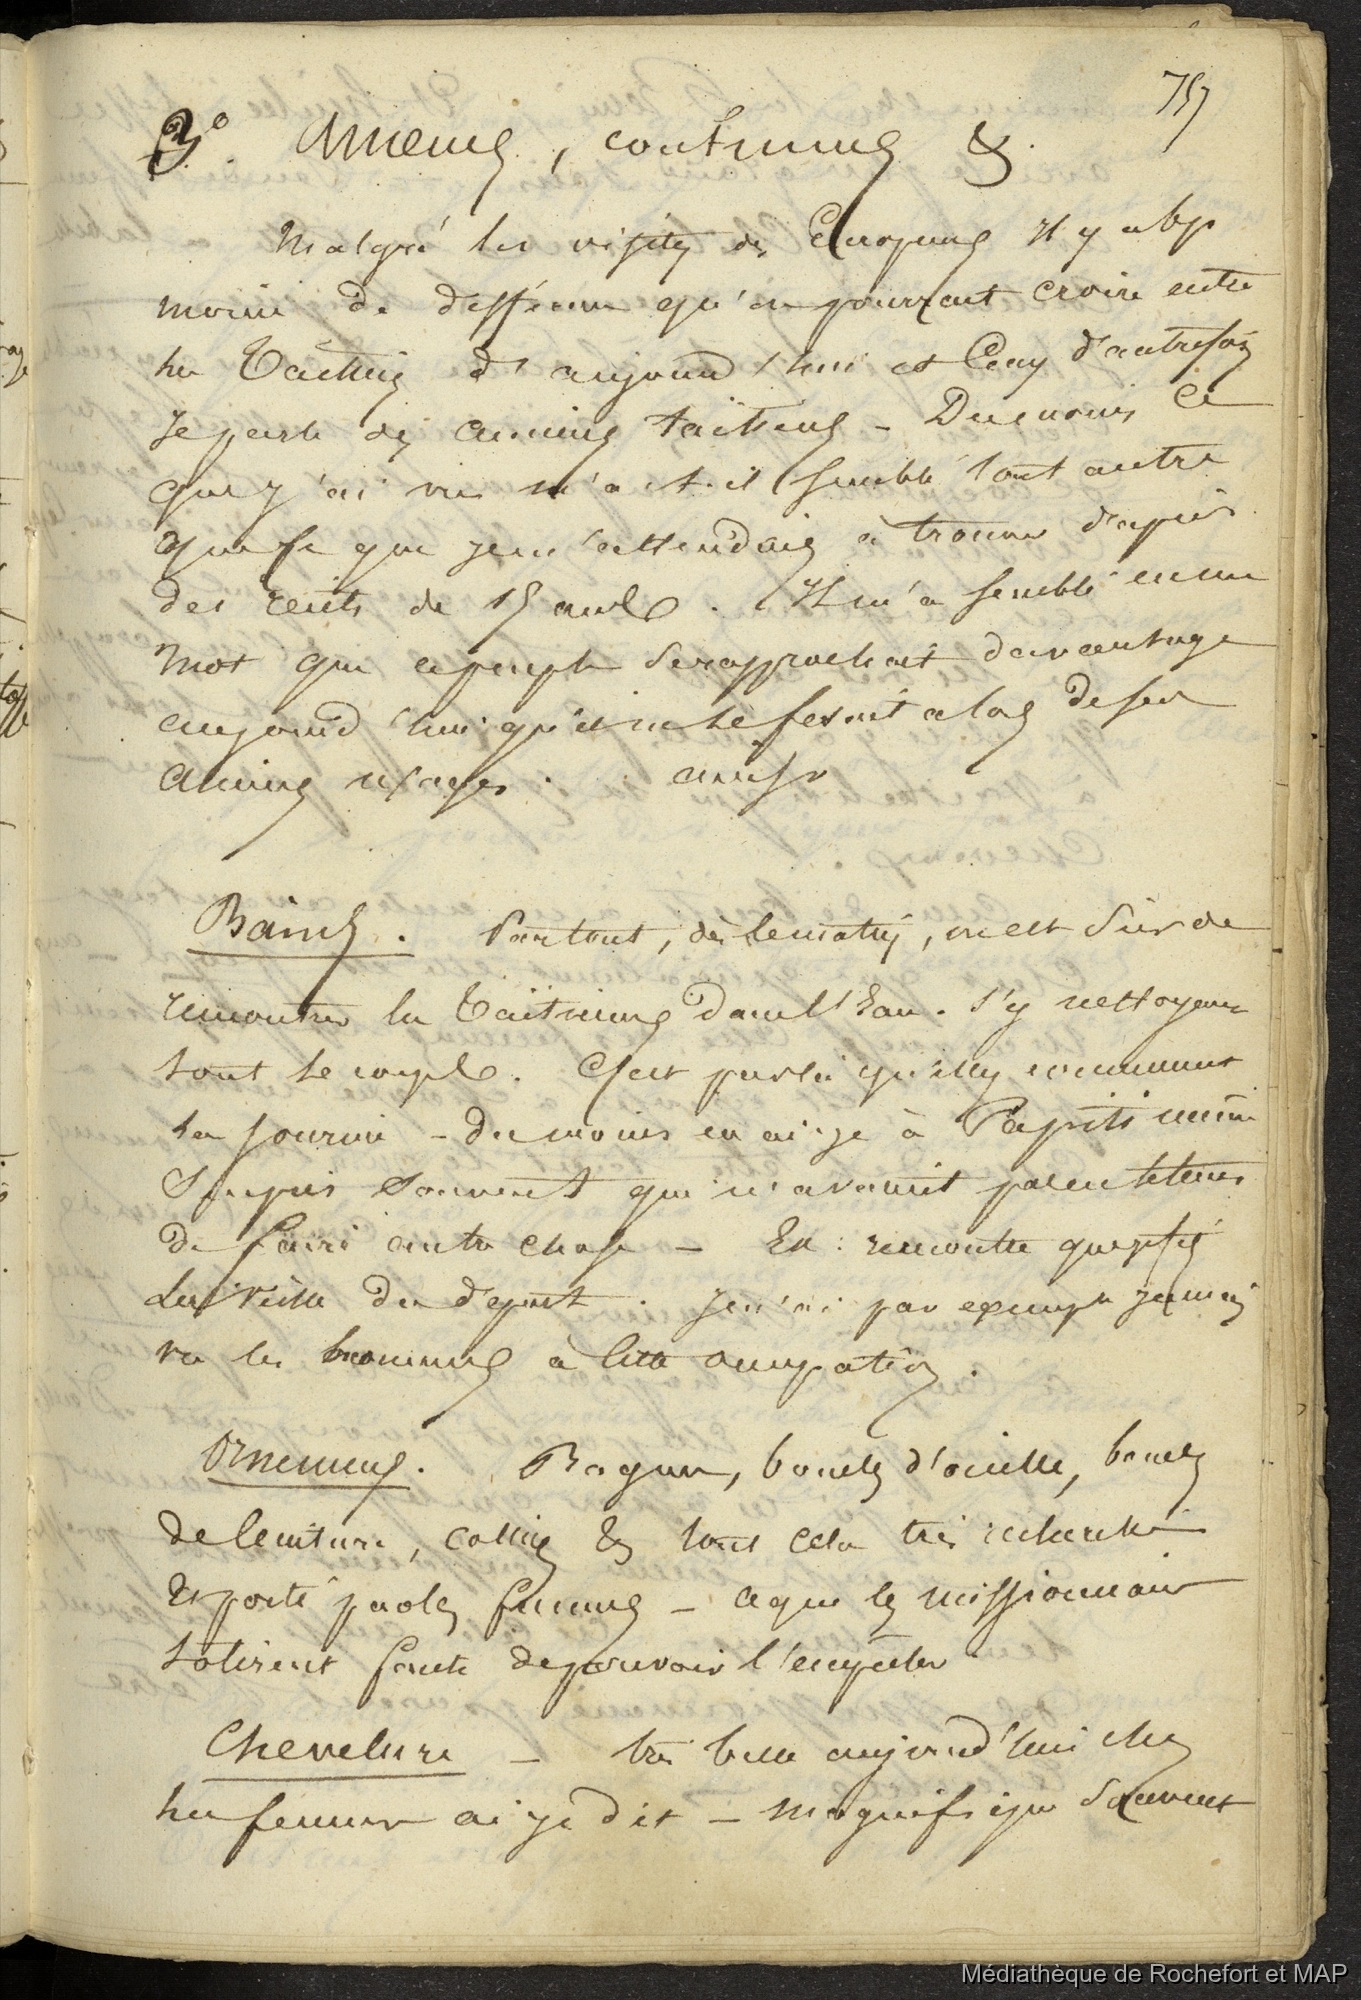 757
3° Moeurs, coutumes &.
Malgré les visites des Européens il y a bp
moins de différence qu'on pourrait croire entre
les Taïtiens d'aujourd'hui et Ceux d'autrefois
Je parle des anciens Taïtiens - Du moins ce
que j'ai vu m'a t-il semblé tout autre
que ce que je m'attendais à trouver d'après
des récits de
Il m'a semblé en un
mot que ce peuple se rapprochait davantage
aujourd'hui qu'il ne le faisait alors de ses
anciens usages.
Bains. Partout, dès le matin, on est sûr de
rencontrer les Taïtiennes dans l'Eau. s'y nettoyant
tout le corps. C'est par là qu'elles commencent
la journée - du moins en ai-je à Papeiti même
surpris souvent qui n'avaient pas eu le tems
de faire autre chose - Ex: rencontre
la veille du départ. Je n'ai par exemple jamais
vu les hommes à cette occupation.
Ornemens. Bagues, boucles d'oreille, boucles
de ceinture, colliers & tout cela très recherché
Et porté par les femmes - ce que les missionnaires
tolèrent faute de pouvoir l'empêcher
Chevelure - très belle aujourd'hui chez
les femmes ai-je dit - magnifique souvent
Médiathèque de Rochefort et MAP